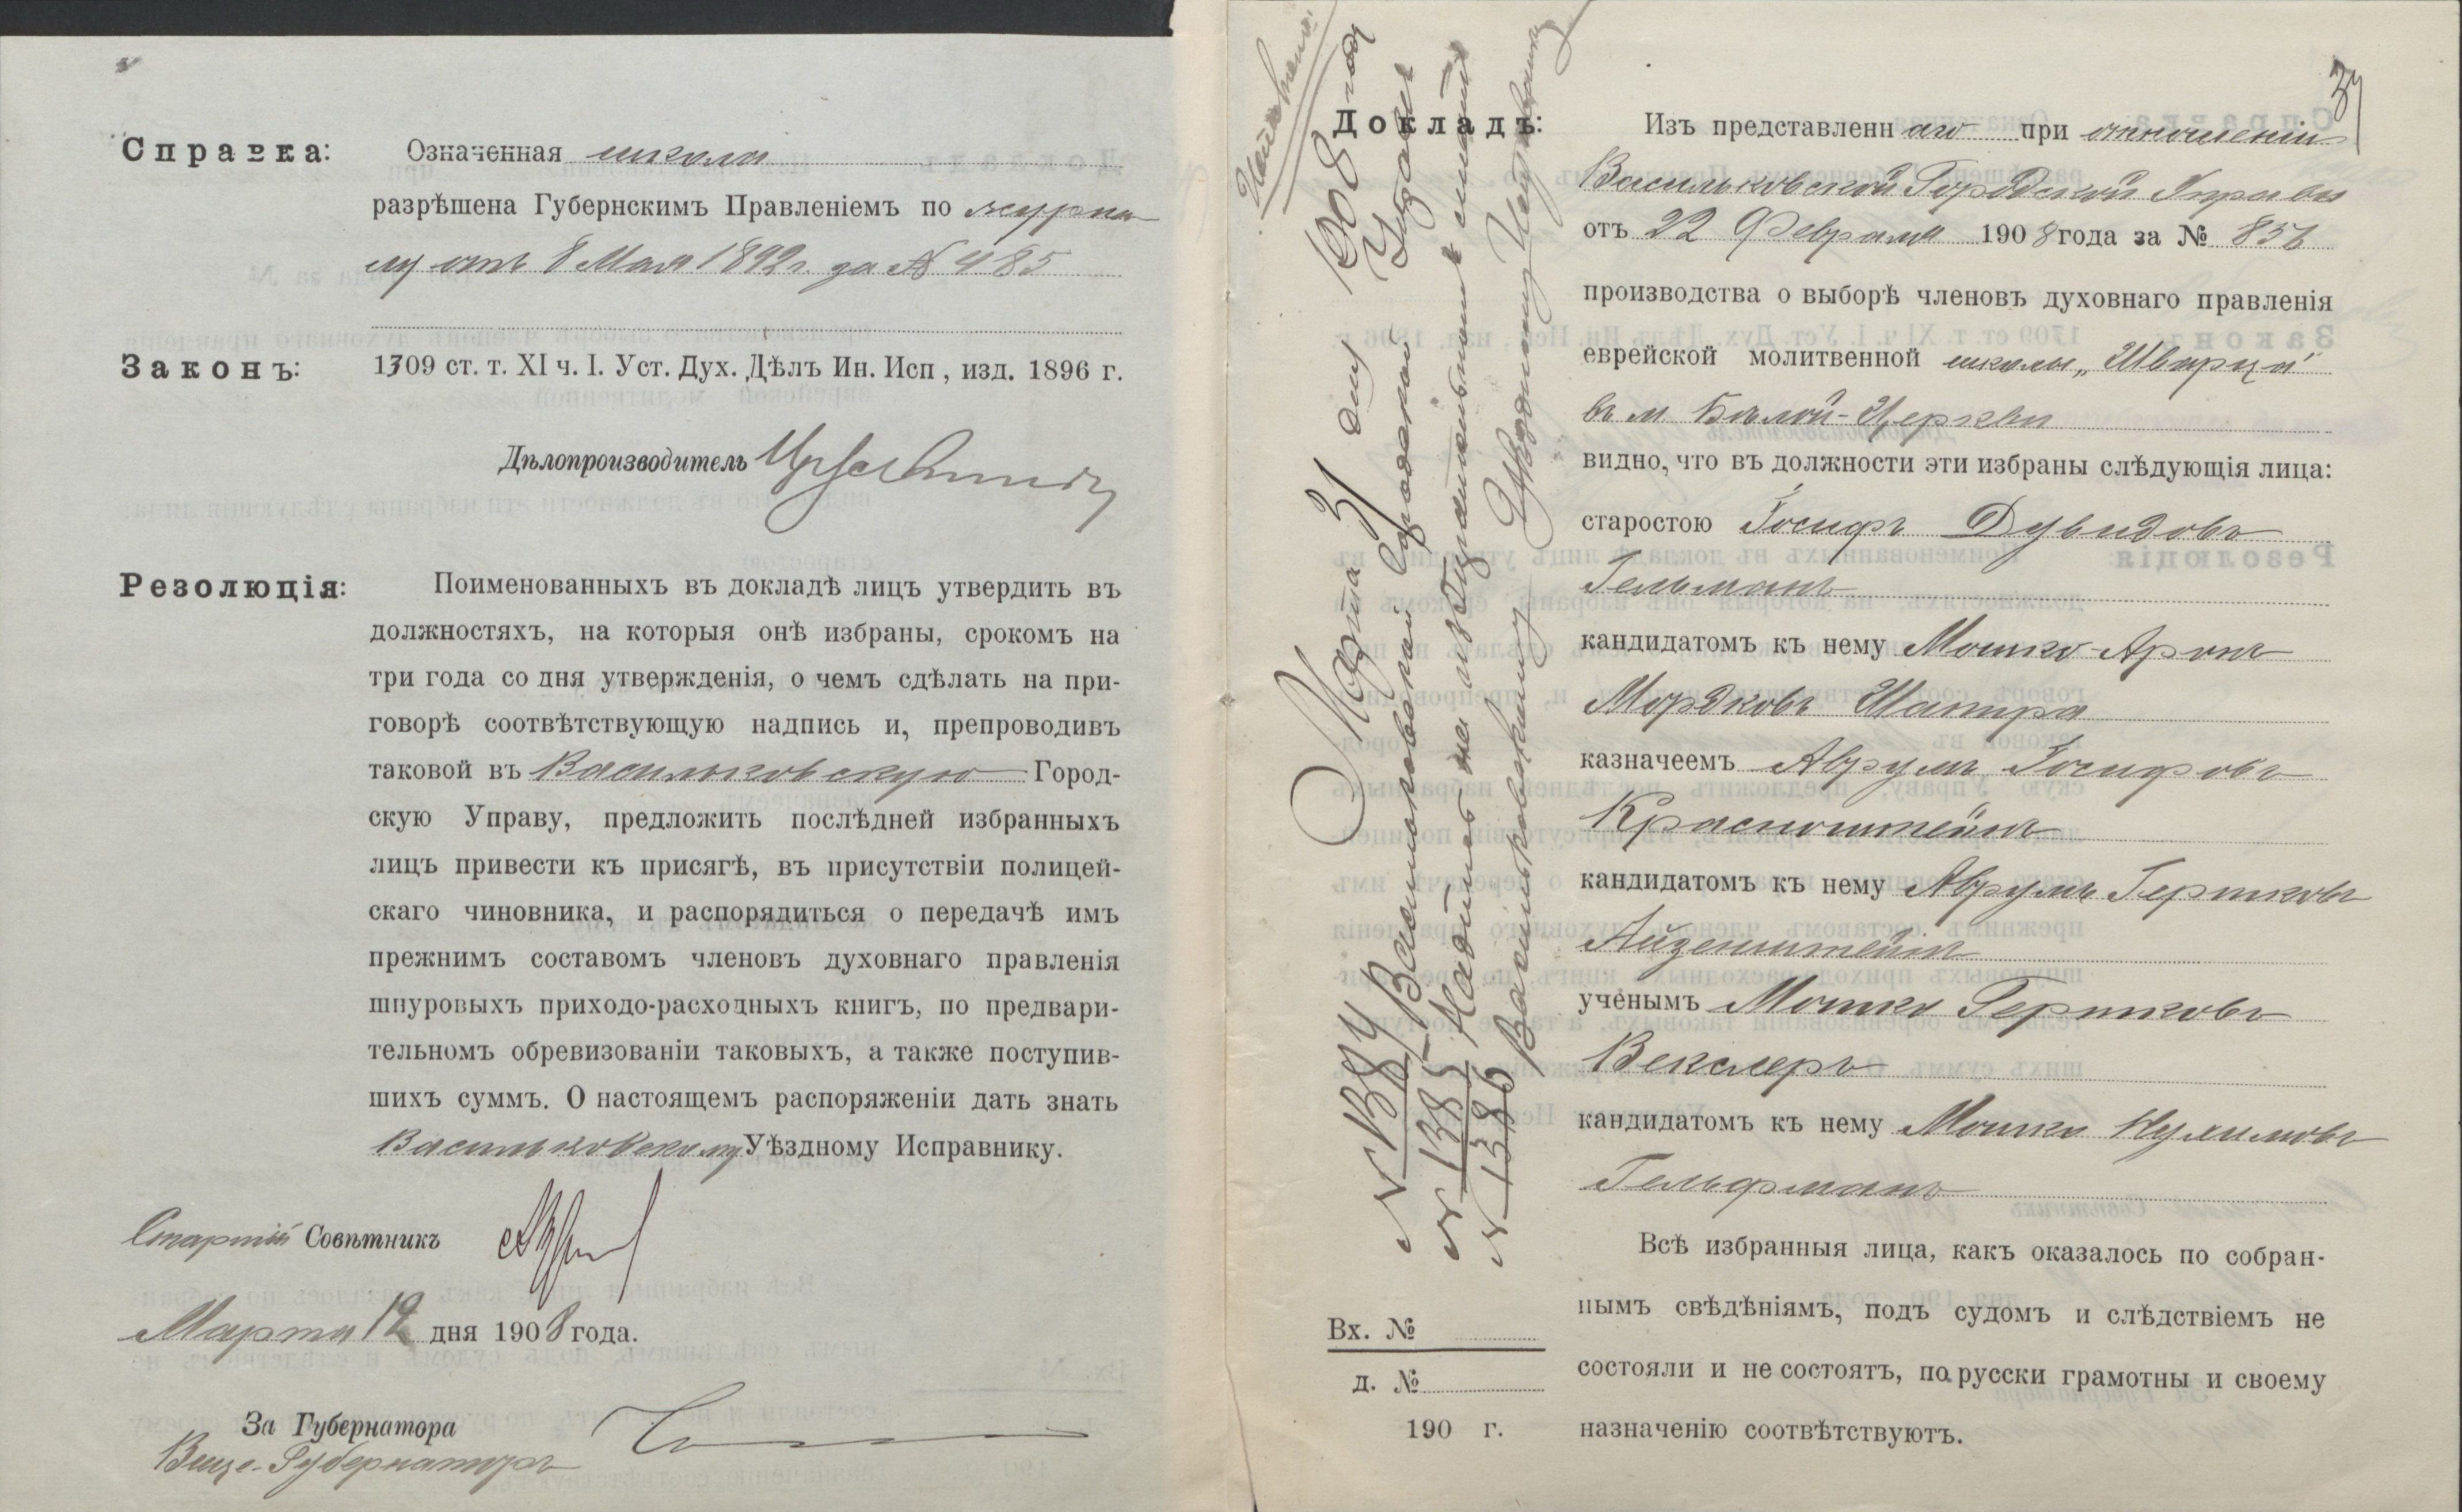 Справка: Означенная школа
разрѣшена Губернскимъ Правленіемъ по журна
лу отъ 8 Мая 1892 г. за № 485
Законъ: 1309 ст. т. XI ч. I. Уст. Дух. Дѣлъ Ин. Исп, изд. 1896 г.
Дѣлопроизводитель
Резолюція: Поименованныхъ въ докладѣ лицъ утвердить въ
должностяхъ, на которыя онѣ избраны, срокомъ на
три года со дня утвержденія, о чемъ сдѣлать на при-
говорѣ соотвѣтствующую надпись и, препроводивъ
таковой въ Васильковскую Город-
скую Управу, предложить послѣдней избранныхъ
лицъ привести къ присягѣ, въ присутствіи полицей-
скаго чиновника, и распорядиться о передачѣ имъ
прежнимъ составомъ членовъ духовнаго правленія
шнуровыхъ приходо-расходныхъ книгъ, по предвари-
тельномъ обревизованіи таковыхъ, а также поступив-
шихъ суммъ. О настоящемъ распоряженіи дать знать
Васильковскому Уѣздному Исправнику.
Старшій Совѣтникъ
Марта 12 дня 1908 года.
За Губернатора
Вице-Губернаторъ
Докладъ: Изъ представленнаго при отношеніи
Васильковской Городской Управы
отъ 22 Февраля 1908 года за № 856
производства о выборѣ членовъ духовнаго правленія
еврейской молитвенной школы „Шварца"
въ м. Бѣлой-Церкви
видно, что въ должности эти избраны слѣдующія лица:
старостою Іосифъ Дувидовъ
Гельманъ
кандидатомъ къ нему Мошко-Аронъ
Мордковъ Шапира
казначеемъ Аврумъ Іосифовъ
Краснштейнъ
кандидатомъ къ нему Аврумъ Гершковъ
Айзенштейнъ
ученымъ Мошко Гершковъ
Векслеръ
кандидатомъ къ нему Мошко Нухимовъ
Гельфманъ
Всѣ избранныя лица, какъ оказалось по собран-
нымъ свѣдѣніямъ, подъ судомъ и слѣдствіемъ не
состояли и не состоятъ, по русски грамотны и своему
назначенію соотвѣтствуютъ.
Марта 31 дня 1908 года
№ 1384 Васильковской Городской Управѣ
№ 1385
№ 1386 Васильковскому Уѣздному Исправнику
Вх. №
д. №
190 г.